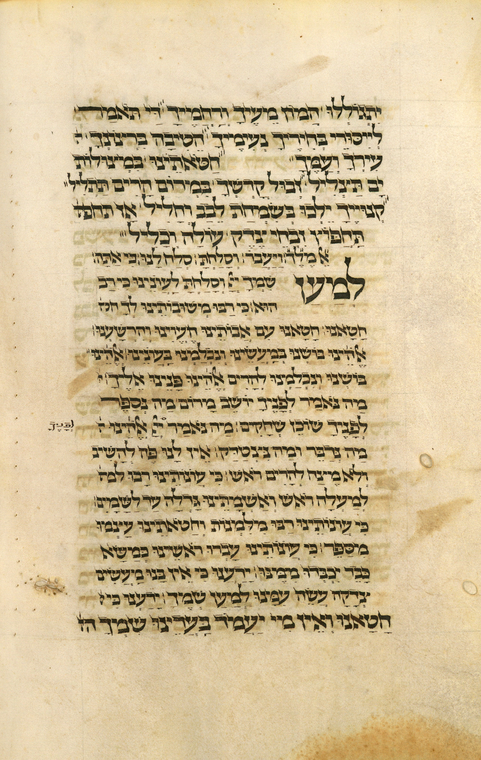 יתגוללו המון מעיך ורחמיך די תאמר
לייסורי בחוריך נעימיך הטיבה ברצונך
עירך ועמך חטאתינו במצולות
ים תצליל זבול קדשך במרום הרים תתליל
קנוייך ילכו בשמחות לבב וחליל אז תחפה
תחפוץ זבחי צדק עולה וכליל
סלח לנו כי אתה
למען שמך וסלחת לעונינו כי רב
הוא כי רבו משובותינו לך חט
חטאנו חטאנו עם אבותינו העוינו והרשענו
בושנו במעשינו ונכלמנו בעונינו
בושנו ונכלמנו להרים פנינו אליך
מה נאמר לפניך יושב מרום מה נספר
לפניך שוכן שחקים מה נאמר
לפניך
מה נדבר ומה נצטדק אין לנו פה להשיב
ולא מצח להרים ראש כי עונותינו רבו למ
למעלה ראש ואשמתינו גדלה עד לשמים
כי עונותינו רבו מלמנות וחטאתינו עצמו
מספר כי עונותינו עברו ראשינו כמשא
כבד יכבדו ממנו ידענו כי אין בנו מעשים
צדקה עשה עמנו למען שמך ידענו כי
חטאנו ואין מי יעמוד בעדינו שמך ה